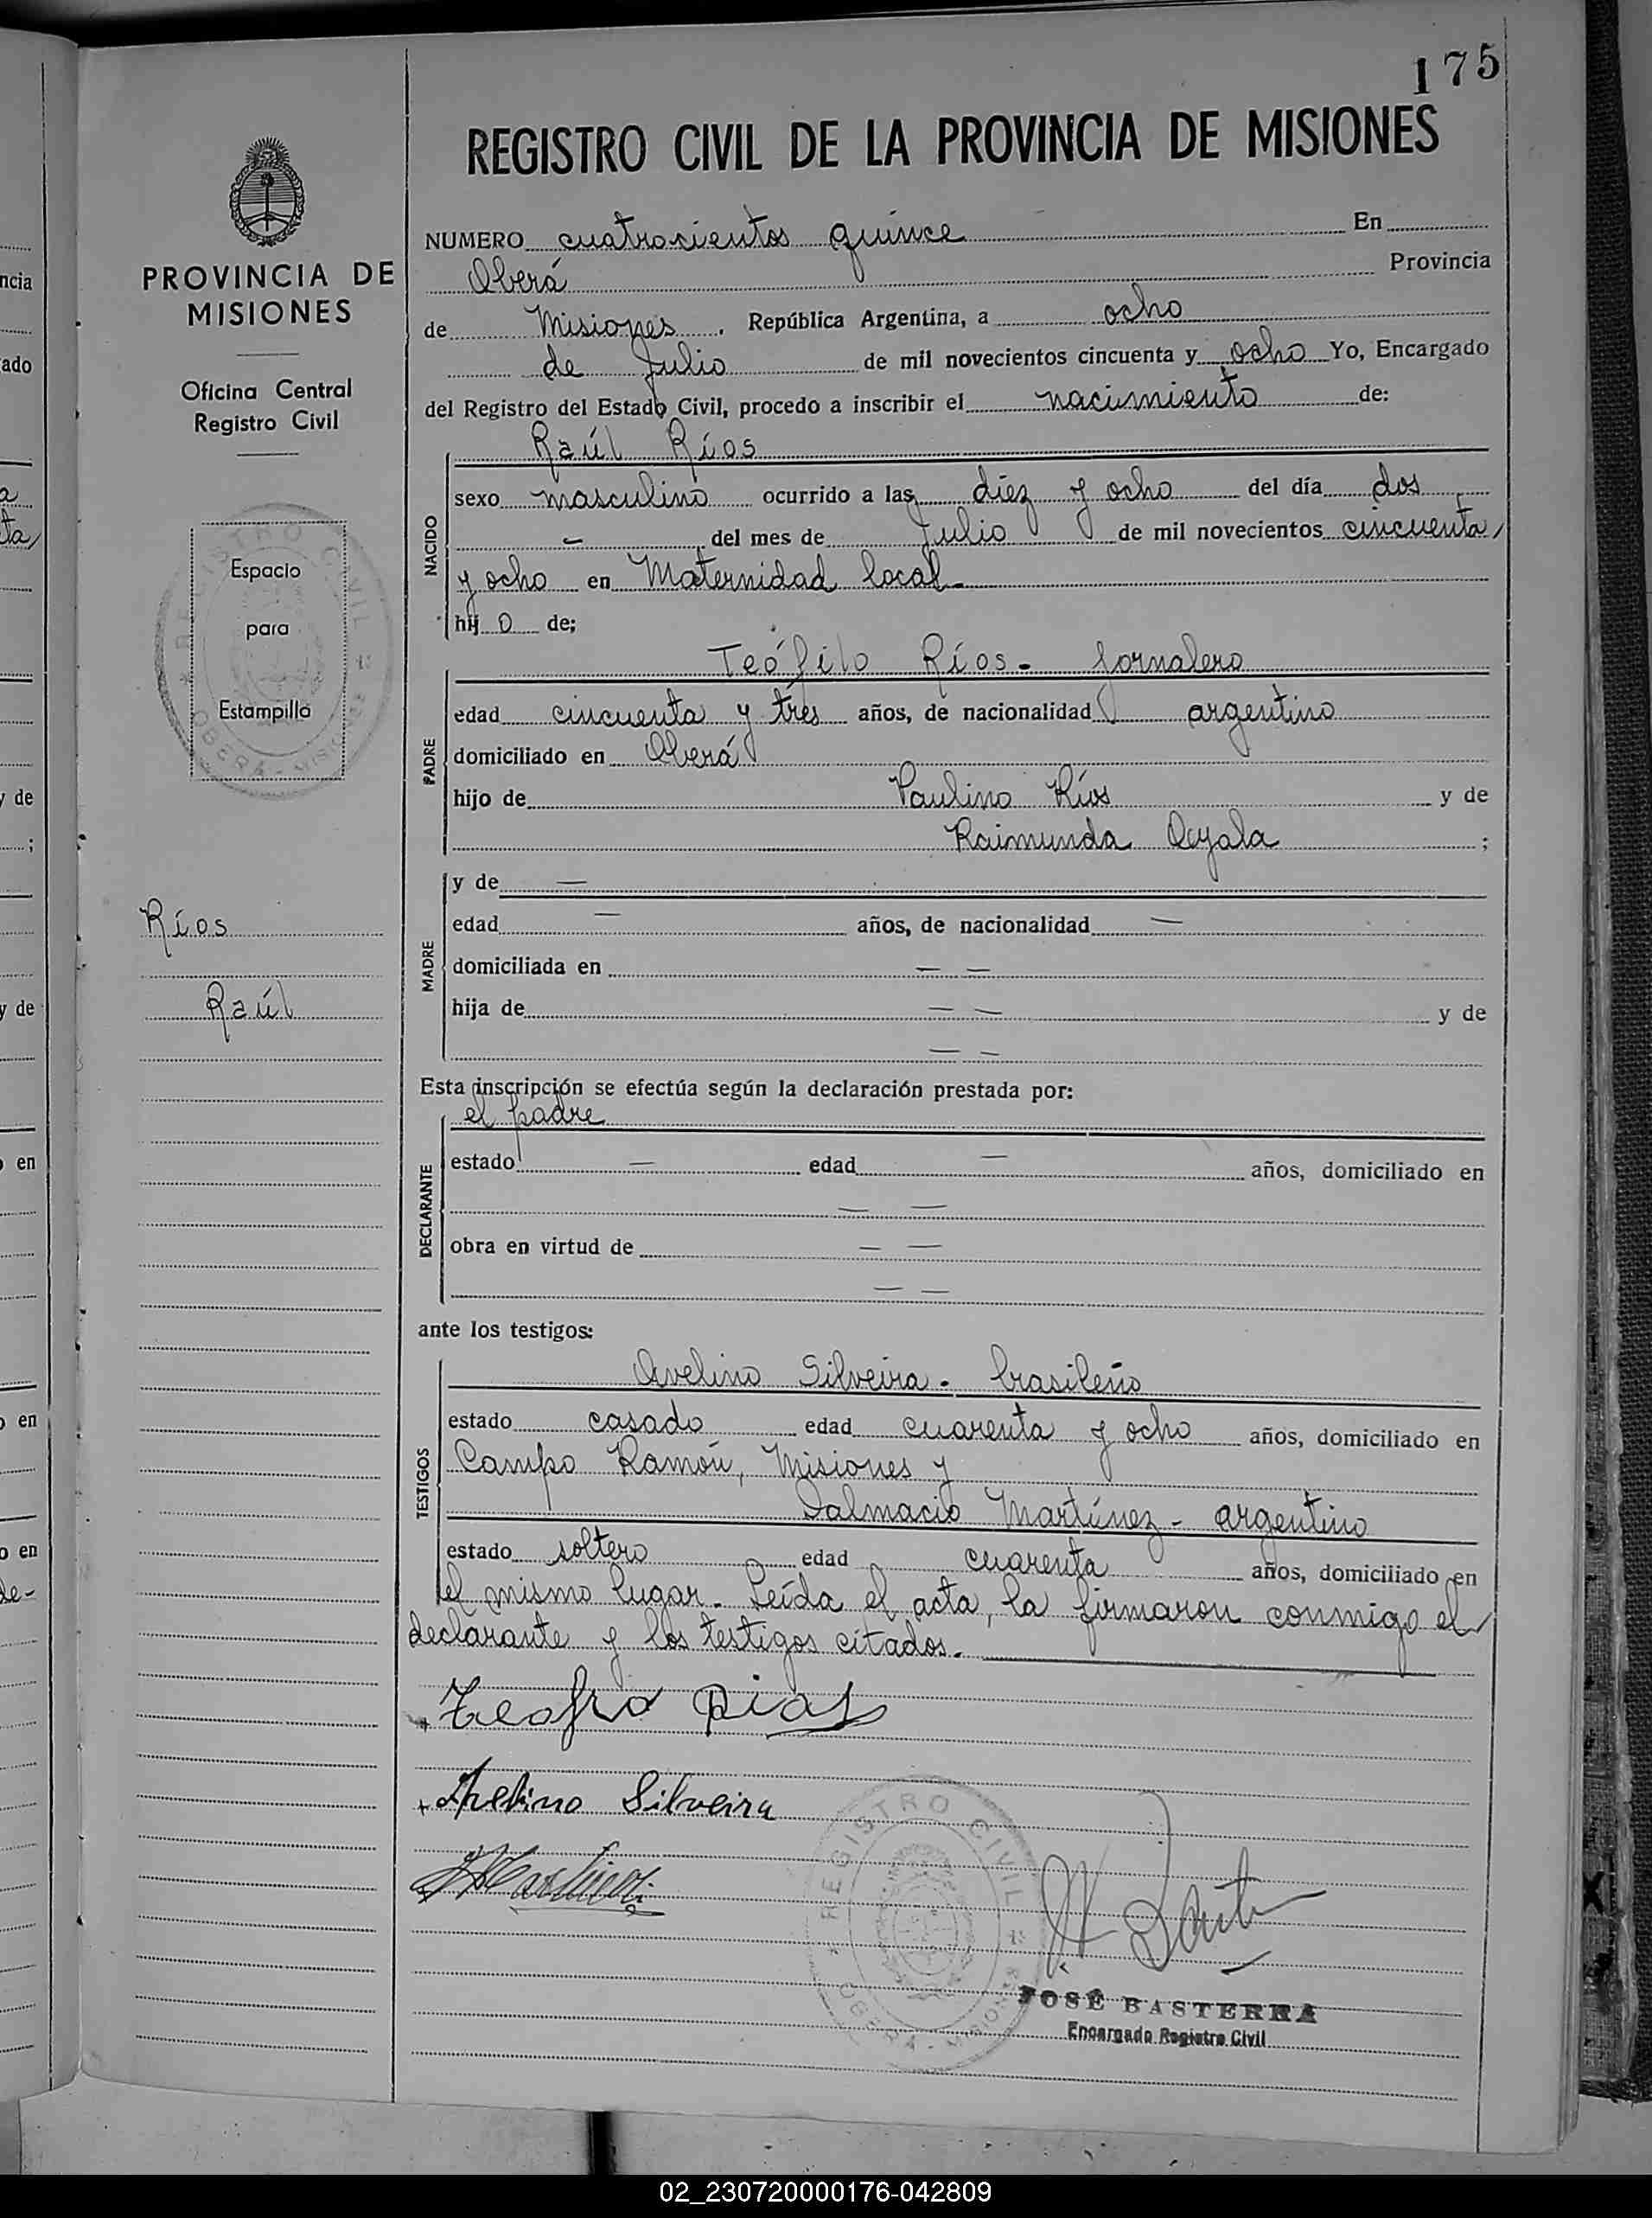 175
REGISTRO CIVIL DE LA PROVINCIA DE MISIONES
PROVINCIA DE
MISIONES
Oficina Central
Registro Civil
Espacio
para
Estampilla
Ríos
Raúl
NUMERO cuatrosientos quince En
Oberá Provincia
de Misiones. República Argentina, a ocho
de Julio de mil novecientos cincuenta y ocho Yo, Encargado
del Registro del Estado Civil, procedo a inscribir el nacimiento de:
Raúl Ríos
NACIDO
sexo masculino ocurrido a las diez y ocho del día dos
— del mes de Julio de mil novecientos cincuenta
y ocho en Maternidad local-
hij o de;
Teófilo Ríos- Jornalero
PADRE
edad cincuenta y tres años, de nacionalidad argentino
domiciliado en Oberá
hijo de Paulino Ríos y de
Raimunda Ayala ;
MADRE
y de —
edad — años, de nacionalidad —
domiciliada en — —
hija de — — y de
— —
Esta inscripción se efectúa según la declaración prestada por:
el padre
DECLARANTE
estado — edad — años, domiciliado en
— —
obra en virtud de — —
— —
ante los testigos:
Avelino Silveira- brasileño
TESTIGOS
estado casado edad cuarenta y ocho años, domiciliado en
Campo Ramón, Misiones y
Dalmacio Martínez- argentino
estado soltero edad cuarenta años, domiciliado en
el mismo lugar- Leída el acta, la firmaron conmigo el
declarante y los testigos citados.-
Avelino Silveira
REGISTRO CIVIL
OBERÁ - MISIONES
JOSÉ BASTERRA
Encargado Registro Civil
02_230720000176-042809